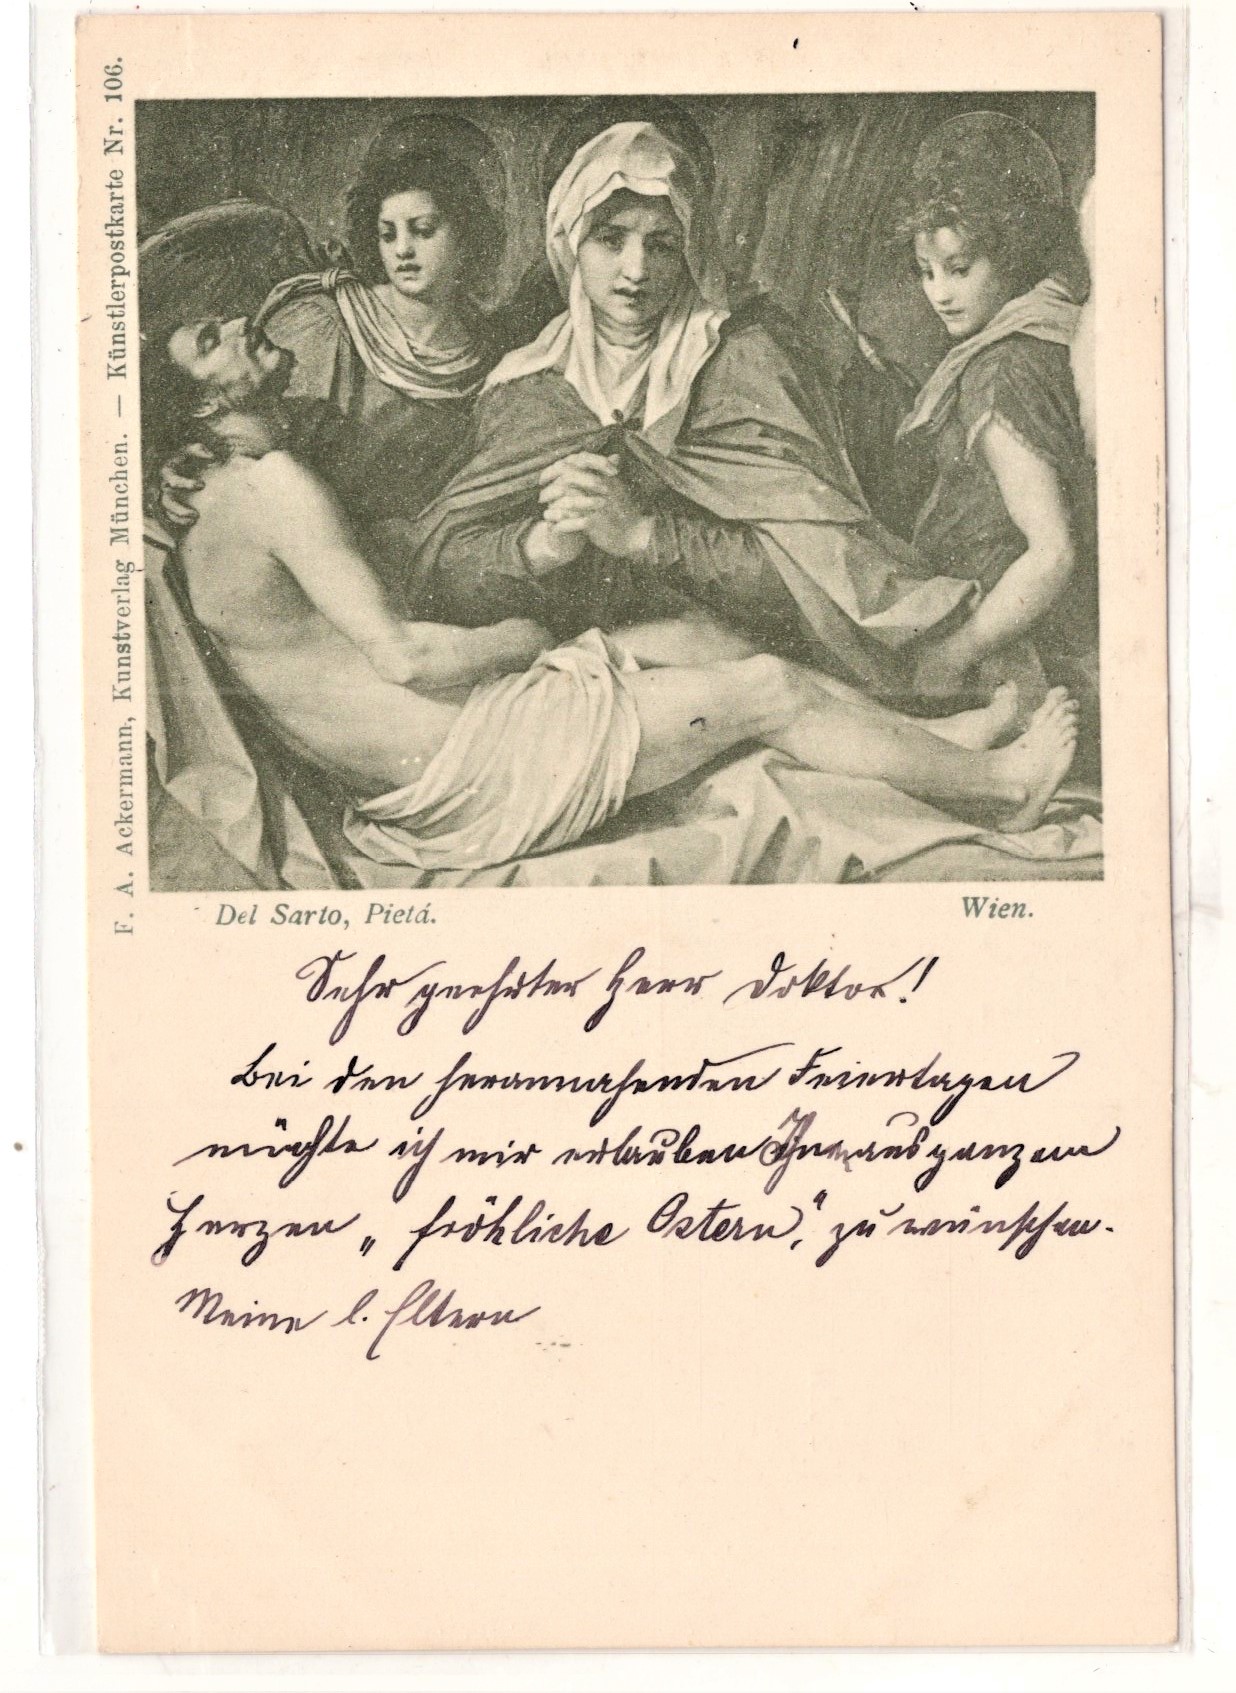 F. A. Ackermann, Kunstverlag München. — Künstlerpostkarte Nr. 106.
Del Sarto, Pietá.
Wien.
Sehr geehrter Herr Doktor!
Bei den herannahenden Feiertagen
möchte ich mir erlauben Ihnen aus ganzem
Herzen „fröhliche Ostern,“ zu wünschen.
Meine l. Eltern